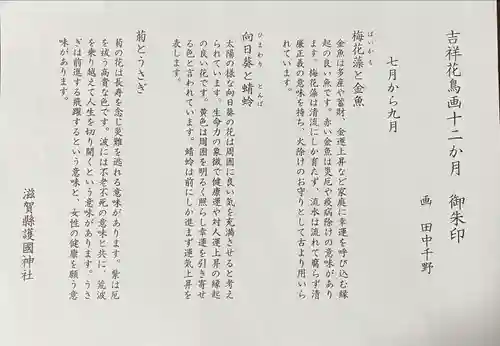 吉祥花鳥画十二か月 御朱印
画 田中千野
七月から九月
ばいかも
梅花藻と金魚
金魚は多産や蓄財、金運上昇など家庭に幸運を呼び込む縁
起の良い魚です。赤い金魚は災厄や疫病除けの意味があり
ます。梅花藻は清流にしか育たず、流水は流れて腐らず清
廉正義の意味を持ち、火除けのお守りとして古より用いら
れています。
ひまわり とんぼ
向日葵と蜻蛉
太陽の様な向日葵の花は周囲に良い気を充満させると考え
られています。生命力の象徴で健康運や対人運上昇の縁起
の良い花です。黄色は周囲を明るく照らし幸運を引き寄せ
る色と言われています。蜻蛉は前にしか進まず運気上昇を
表します。
菊とうさぎ
菊の花は長寿を念じ災難を逃れる意味があります。紫は厄
を祓う高貴な色です。波には不老不死の意味と共に、荒波
を乗り越えて人生を切り開くという意味があります。うさ
ぎは前進する飛躍するという意味と、女性の健康を願う意
味があります。
滋賀縣護國神社